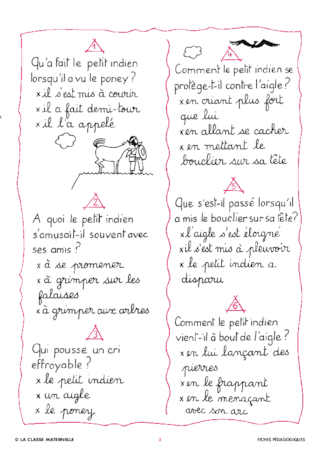 1
Qu'a fait le petit indien
lorsqu'il a vu le poney ?
x il s'est mis à courir
x il a fait demi-tour
x il l'a appelé
2
A quoi le petit indien
s'amusait-il souvent avec
ses amis ?
x à se promener
x à grimper sur les
falaises
x à grimper aux arbres
3
Qui pousse un cri
effrayant ?
x le petit indien
x un aigle
x le poney
4
Comment le petit indien se
protège-t-il contre l'aigle ?
x en criant plus fort
que lui
x en allant se cacher
x en mettant le
bouclier sur sa tête
5
Que s'est-il passé lorsqu'il
a mis le bouclier sur sa tête ?
x l'aigle s'est éloigné
x il s'est mis à pleuvoir
x le petit indien a
disparu
6
Comment le petit indien
vient-il à bout de l'aigle ?
x en lui lançant des
pierres
x en le frappant
x en le menaçant
avec son arc
© LA CLASSE MATERNELLE
3
FICHES PÉDAGOGIQUES